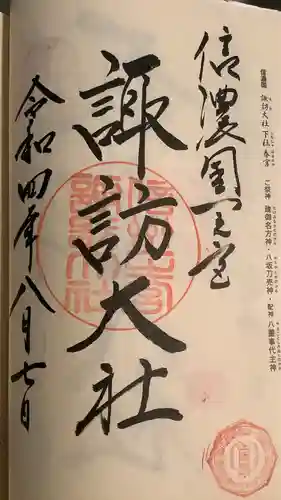 信濃國 諏訪大社下社春宮 ご祭神 建御名方神・八坂刀売神・配神 八重事代主神
信濃國一之宮
諏訪大社
令和四年八月七日